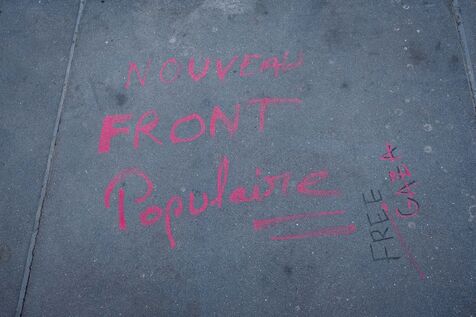 NOUVEAU
FRONT
Populaire
FREE
GAZA